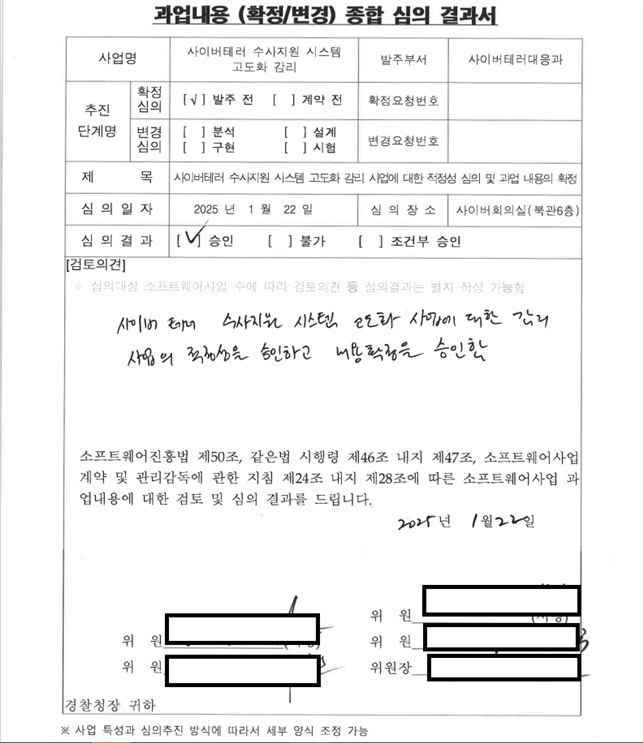 과업내용 (확정/변경) 종합 심의 결과서
사업명
사이버테러 수사지원 시스템
고도화 감리
발주부서
사이버테러대응과
추진
단계명
확정
심의
[√] 발주 전 [ ] 계약 전
확정요청번호
변경
심의
[ ] 분석 [ ] 설계
[ ] 구현 [ ] 시험
변경요청번호
제 목
사이버테러 수사지원 시스템 고도화 감리 사업에 대한 적정성 심의 및 과업 내용의 확정
심 의 일 자
2025 년 1 월 22 일
심 의 장 소
사이버회의실(북관6층)
심 의 결 과
[√] 승인 [ ] 불가 [ ] 조건부 승인
[검토의견]
※ 심의대상 소프트웨어사업 수에 따라 검토의견 등 심의결과는 별지 작성 가능함
사이버 테러 수사지원 시스템 고도화 사업에 대한 감리
사업의 적정성을 승인하고 내용확정을 승인함
소프트웨어진흥법 제50조, 같은법 시행령 제46조 내지 제47조, 소프트웨어사업
계약 및 관리감독에 관한 지침 제24조 내지 제28조에 따른 소프트웨어사업 과
업내용에 대한 검토 및 심의 결과를 드립니다.
2025년 1월 22일
위 원
위 원
위 원
위 원
위원장
경찰청장 귀하
※ 사업 특성과 심의추진 방식에 따라서 세부 양식 조정 가능